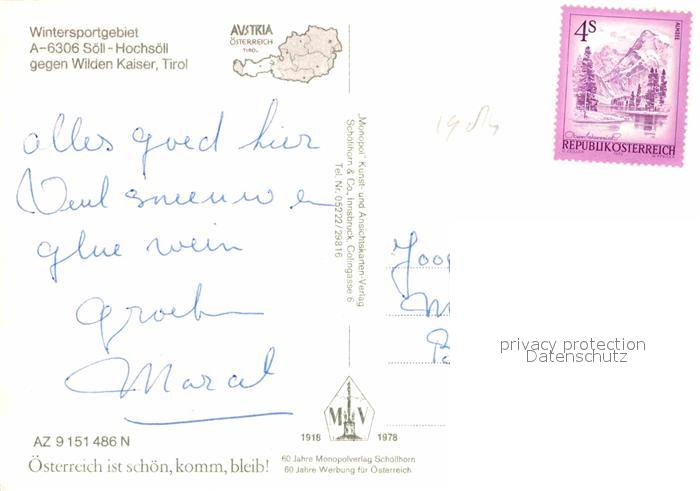 Wintersportgebiet
A-6306 Söll - Hochsöll
gegen Wilden Kaiser, Tirol
AUSTRIA
ÖSTERREICH
TIROL
4S
ALMSEE
REPUBLIK ÖSTERREICH
alles goed hier
Veul sneeuw en
glue wein
groeten
Marcel
„Monopol" Kunst- und Ansichtskarten-Verlag
Schöllhorn & Co., Innsbruck, Colingasse 6
Tel. Nr. 05222/29816
privacy protection
Datenschutz
M V
1918 1978
AZ 9 151 486 N
Österreich ist schön, komm, bleib!
60 Jahre Monopolverlag Schöllhorn
60 Jahre Werbung für Österreich